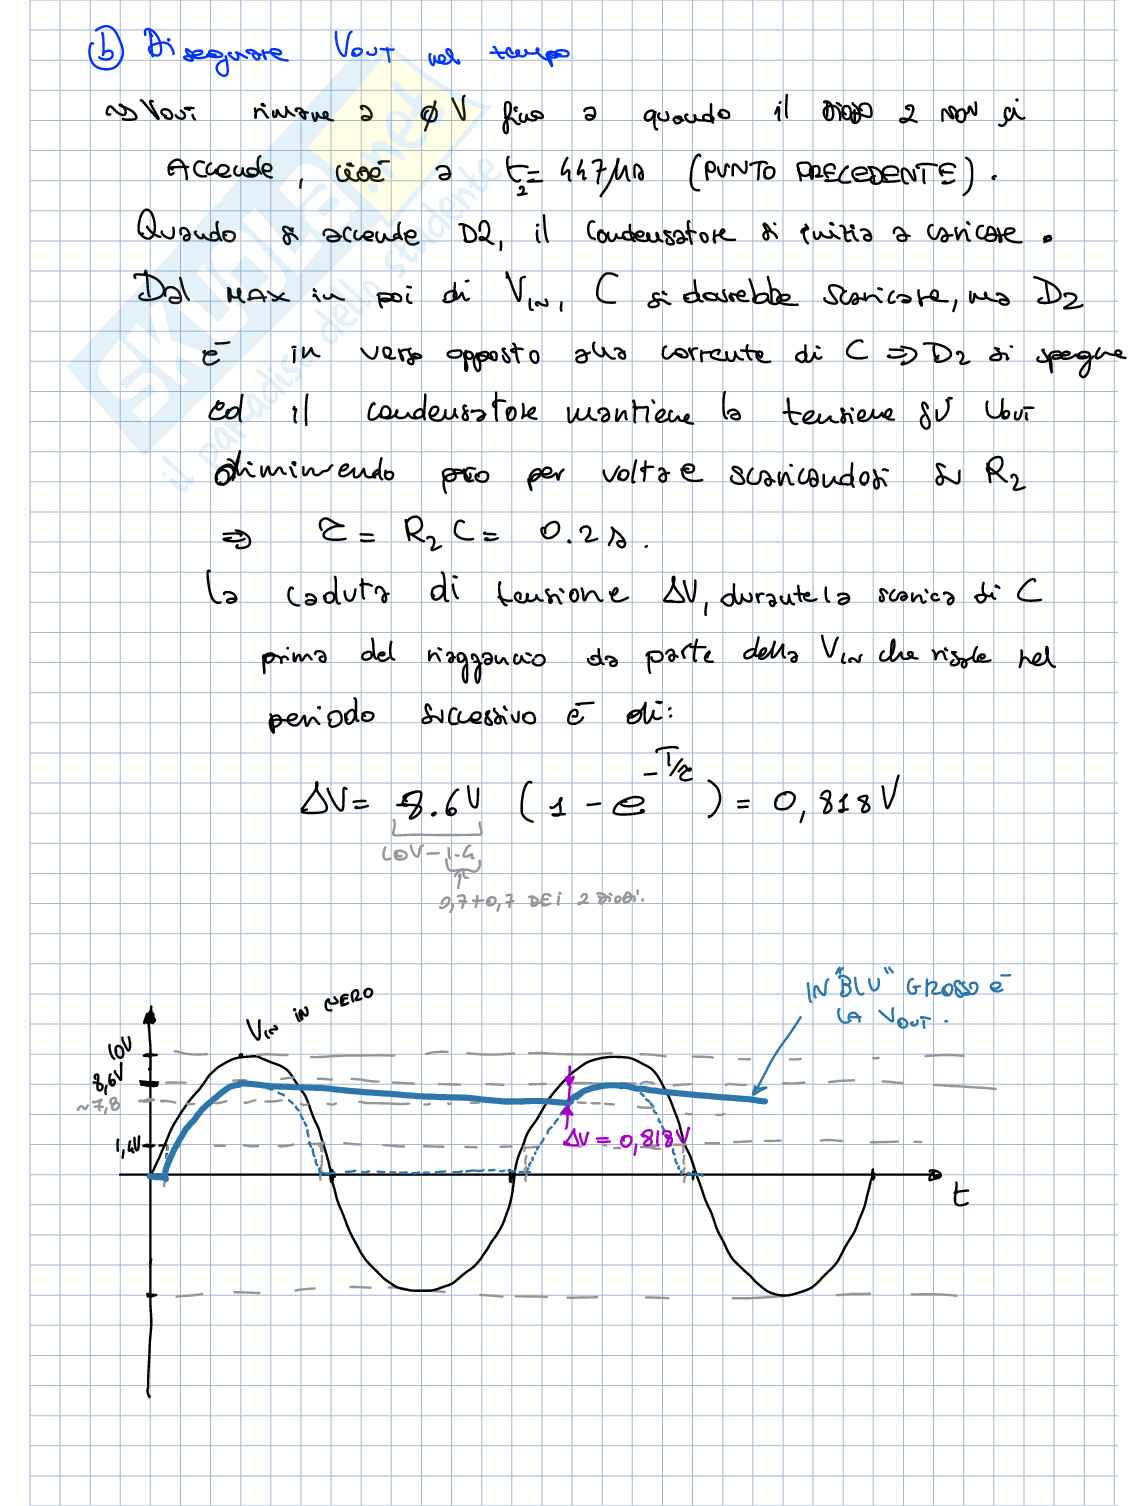 b Disegnare VOUT nel tempo
~> VOUT rimane a φV fino a quando il DIODO 2 NON si
Accende, cioè a t2 = 447μs (PUNTO PRECEDENTE).
Quando si accende D2, il condensatore si inizia a caricare.
Dal MAX in poi di VIN, C si dovrebbe scaricare, ma D2
è in verso opposto alla corrente di C => D2 si spegne
ed il condensatore mantiene la tensione su VOUT
diminuendo però per volta e scaricandosi su R2
=> τ = R2 C = 0.2 s.
La caduta di tensione ΔV, durante la scarica di C
prima del riaggancio da parte della VIN che risale nel
periodo successivo è di:
ΔV = 8.6V (1 - e^-T/τ) = 0,818V
10V - 1.4
0,7+0,7 DEI 2 DIODI.
IN "BLU" GROSSO è
LA VOUT.
VIN IN NERO
10V
8,6V
~7,8
1,4V
ΔV = 0,818V
t
SKUOLA.net
il paradiso dello studente